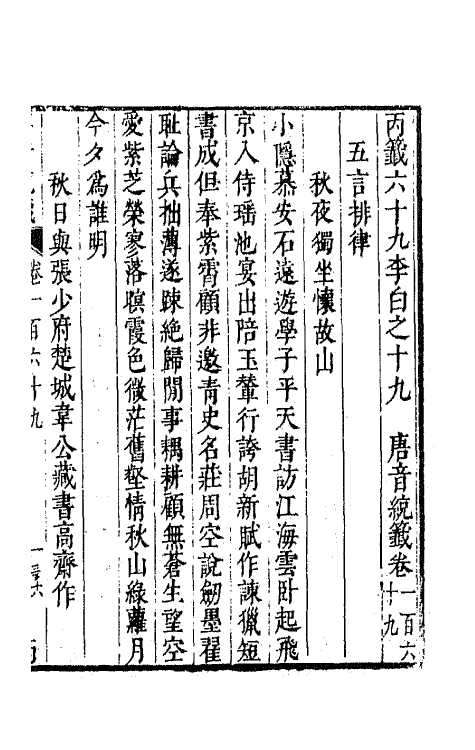 丙籤六十九李白之十九　唐音統籤卷一百六十九
五言排律
秋夜獨坐懷故山
小隱慕安石遠遊學子平天書訪江海雲卧起飛
京入侍瑶池宴出陪玉輦行誇胡新賦作諫獵短
書成但奉紫霄顧非邀青史名莊周空說劒墨翟
耻論兵拙薄遂踈絶歸閒事耦耕顧無蒼生望空
愛紫芝榮寥落暝霞色微茫舊壑情秋山緑蘿月
今夕爲誰明
秋日與張少府楚城韋公藏書高齋作
卷一百六十九